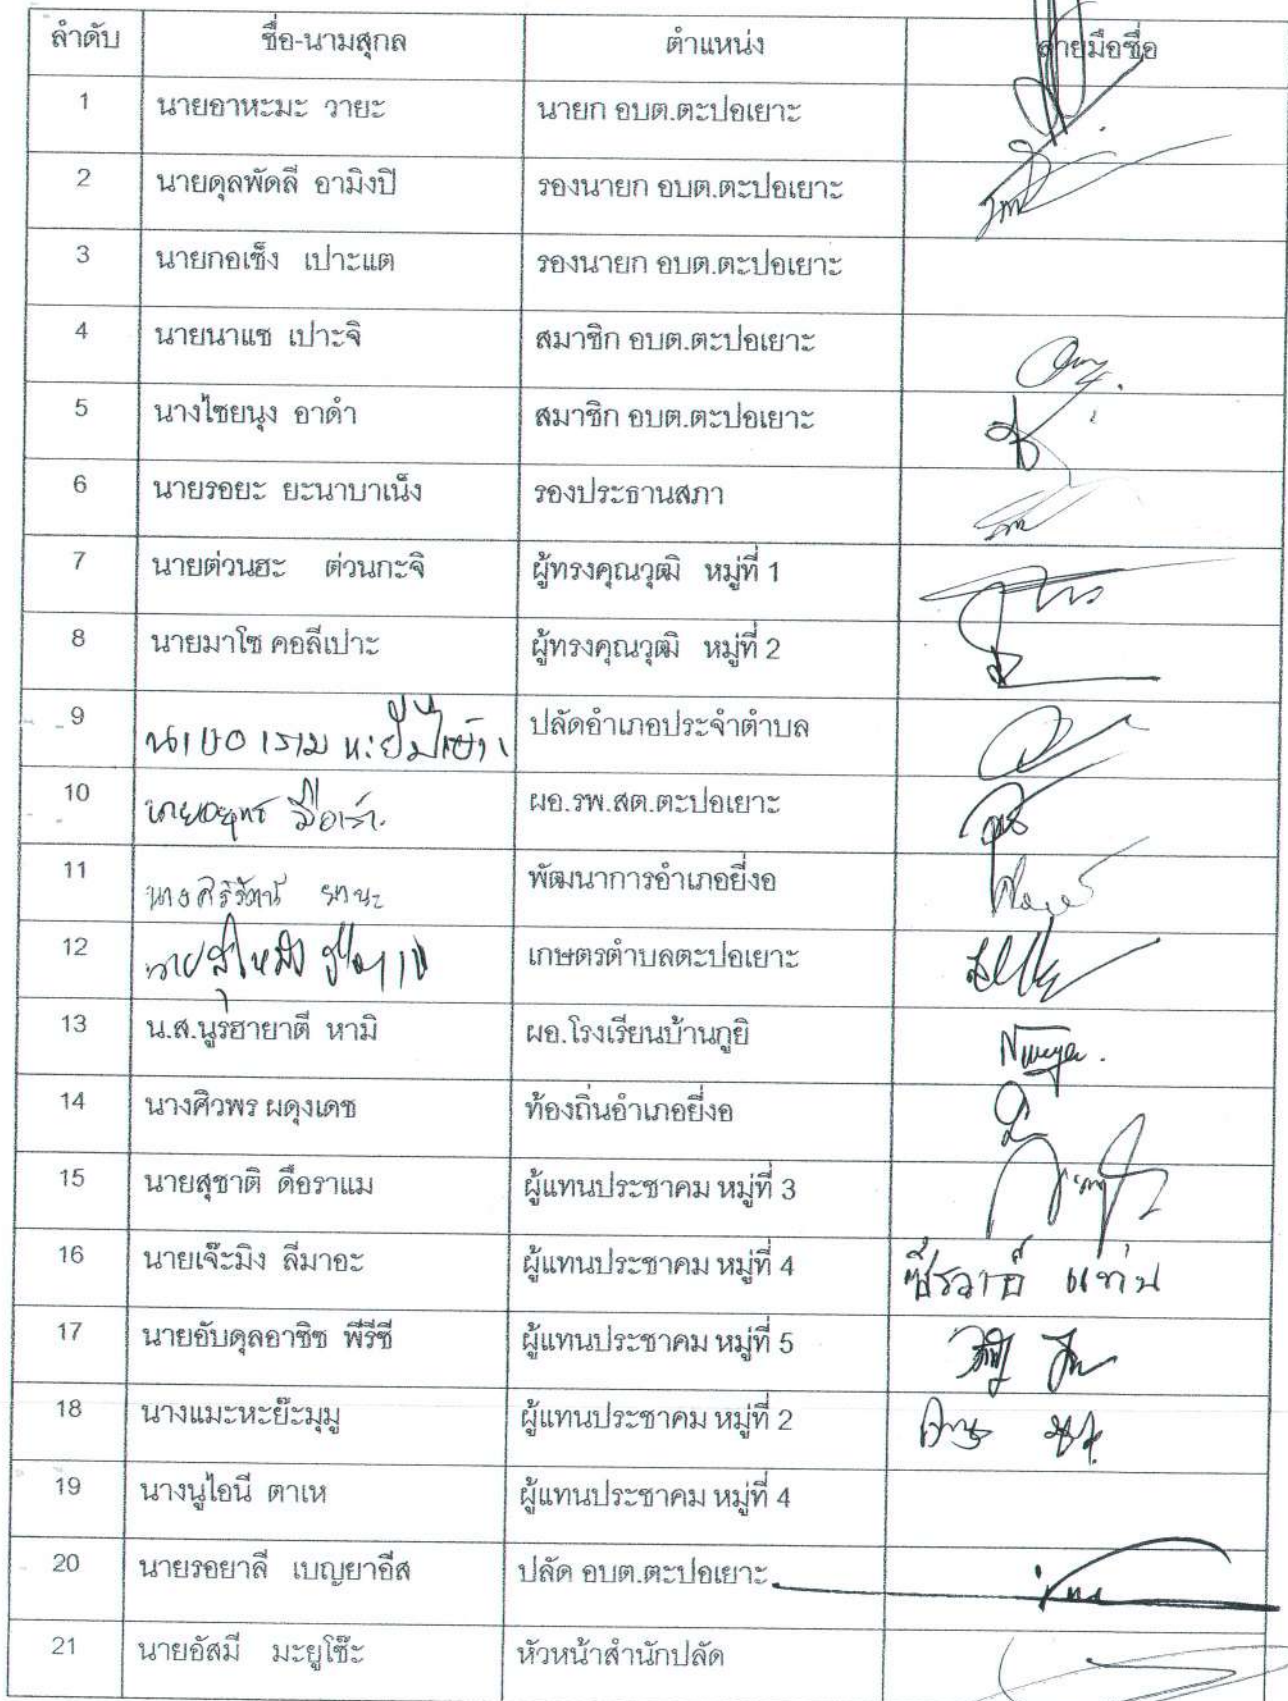 ลำดับ ชื่อ-นามสกุล ตำแหน่ง ลายมือชื่อ
1 นายอาหะมะ วายะ นายก อบต.ตะปอเยาะ
2 นายดุลพัดลี อามิงปิ รองนายก อบต.ตะปอเยาะ
3 นายกอเซ็ง เปาะแต รองนายก อบต.ตะปอเยาะ
4 นายนาแซ เปาะจิ สมาชิก อบต.ตะปอเยาะ
5 นางไซยนุง อาดำ สมาชิก อบต.ตะปอเยาะ
6 นายรอยะ ยะนาบาเน็ง รองประธานสภา
7 นายต่วนฮะ ต่วนกะจิ ผู้ทรงคุณวุฒิ หมู่ที่ 1
8 นายมาโซ คอลีเปาะ ผู้ทรงคุณวุฒิ หมู่ที่ 2
9 ปลัดอำเภอประจำตำบล
10 ผอ.รพ.สต.ตะปอเยาะ
11 นางศิริรัตน์ พัฒนาการอำเภอยี่งอ
12 นาย เกษตรตำบลตะปอเยาะ
13 น.ส.นูรฮายาตี หามิ ผอ.โรงเรียนบ้านกูยิ
14 นางศิวพร ผดุงเดช ท้องถิ่นอำเภอยี่งอ
15 นายสุชาติ ดือราแม ผู้แทนประชาคม หมู่ที่ 3
16 นายเจ๊ะมิง ลีมาอะ ผู้แทนประชาคม หมู่ที่ 4
17 นายอับดุลอาซิซ พีรีซี ผู้แทนประชาคม หมู่ที่ 5
18 นางแมะหะย๊ะมุมู ผู้แทนประชาคม หมู่ที่ 2
19 นางนูไอนี ตาเห ผู้แทนประชาคม หมู่ที่ 4
20 นายรอยาลี เบญยาอีส ปลัด อบต.ตะปอเยาะ
21 นายอัสมี มะยูโซ๊ะ หัวหน้าสำนักปลัด